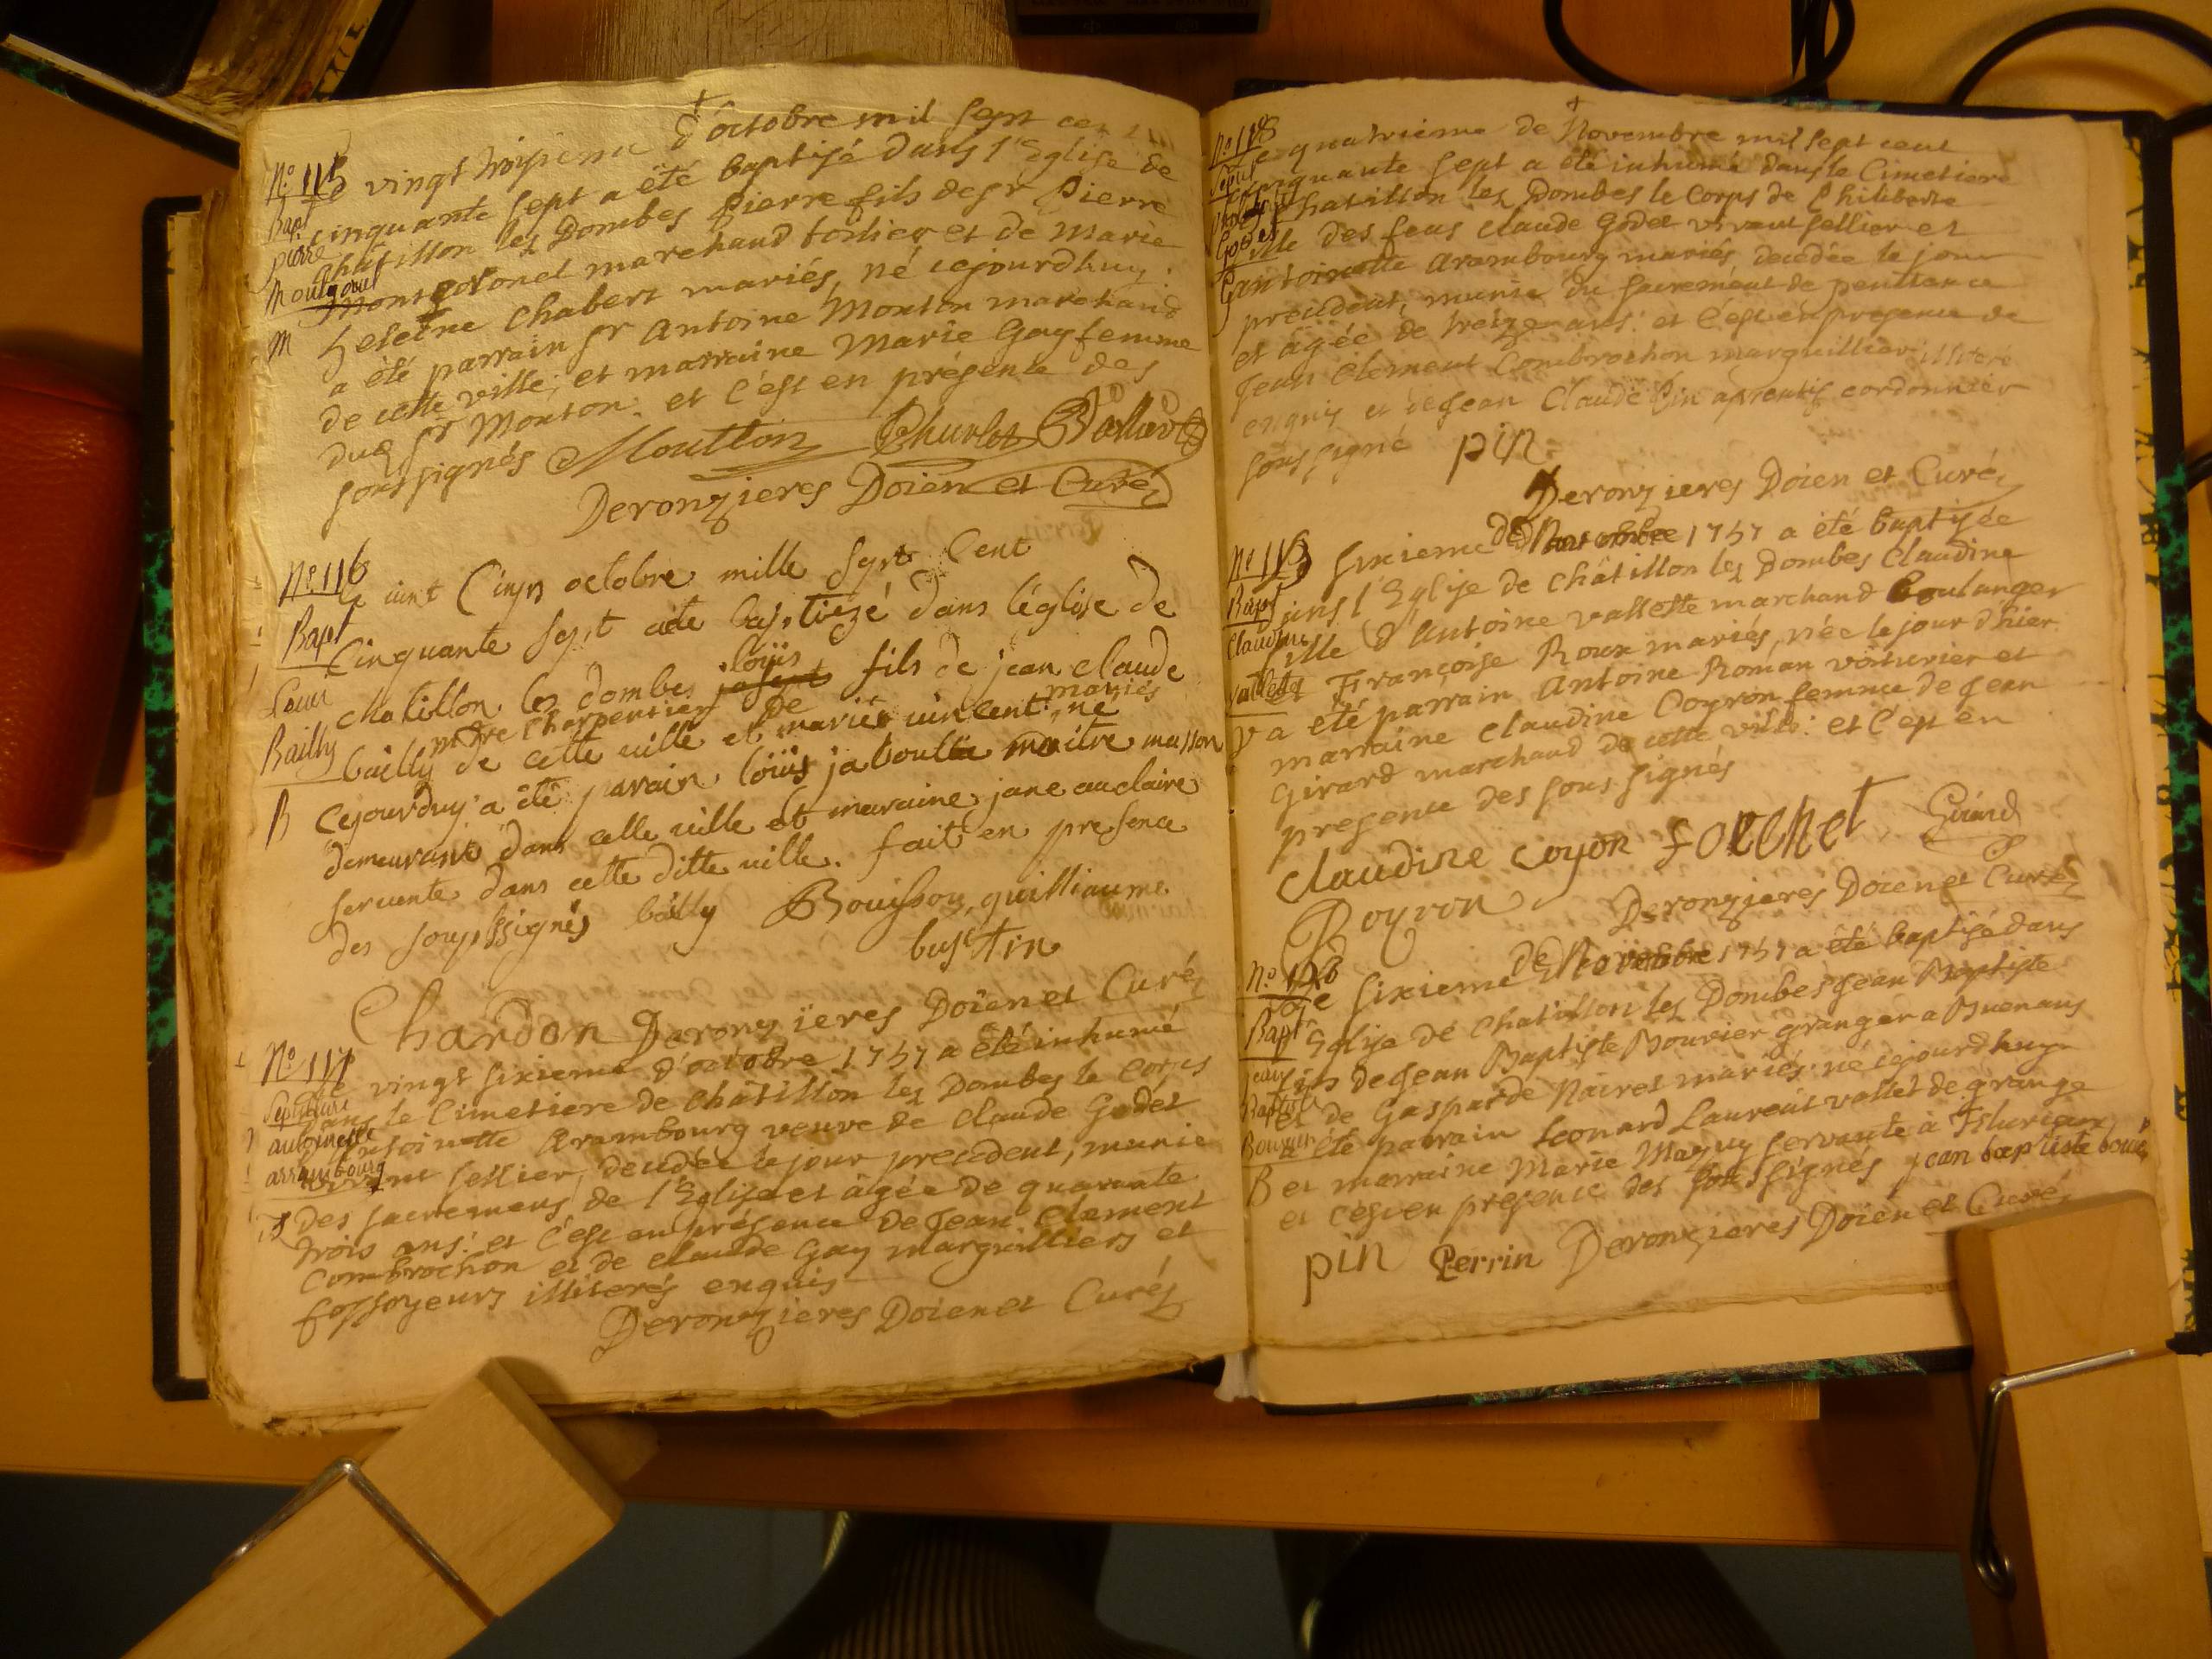 d'octobre mil sept cent
N.° 115 Le vingt troisieme
Bapt cinquante sept a été baptisé dans l'Eglise de
pierre chatillon les Dombes Pierre fils de sr Pierre
Montgolonel marchand toilier et de Marie
M helene Chabert mariés, né cejourdhuy.
a été parrain sr Antoine Monton marchand
de cette ville; et marraine Marie Gay femme
dud. sr Monton. et c'est en présence des
soussignés Moutton Charlet
Deronzieres Doien et Curé
N.° 116
Le vint Cinq octobre mille sept Cent
Bapt Cinquante sept a été baptizé dans l'église de
Louis chatillon les dombes loüis fils de jean claude
mtre charpentier de mariés
Bailly bailly de cette ville et marie vincent, né
B Cejourduy a été parain loüis maitre masson
demeurant dans cette ville et maraine jane auclaire
servente dans cette ditte ville. fait en presence
des soussignés bailly Bouisson, quilliaume
bustin
Chardon Deronzieres Doien et Curé
N.° 117
Le vingt sixieme d'octobre 1757 a été inhumé
Sepulture dans le Cimetiere de châtillon les Dombes le corps
antoinette d'Antoinette Arambourg veuve de Claude Godet
arrambourg vivant sellier, decedée le jour precedent, munie
des sacremens de l'Eglise et âgée de quarante
trois ans: et c'est en présence de Jean Clement
Combrochon et de claude Gay marguilliers et
fossoyeurs illiterés enquis
Deronzieres Doien et Curé
N.° 118
Le quatrieme de Novembre mil sept cent
Sepult cinquante sept a été inhumé dans le Cimetiere
de Chatillon les Dombes le corps de Philiberte
Godet fille des feus claude Godet vivant sellier et
G antoinette Arambourg mariés, decedée le jour
precedent, munie du sacrement de penitence
et âgée de treize ans: et c'est en presence de
Jean Clement Combrochon marguillier illiteré
enquis et de Jean Claude Pin aprentif cordonnier
soussigné pin
Deronzieres Doien et Curé
N.° 119 Le sixieme de Novembre 1757 a été baptisée
Bapt dans l'Eglise de châtillon les Dombes Claudine
Claudine fille d'Antoine vallette marchand Boulanger
vallette et Françoise Roux mariés, née le jour d'hier
V a été parrain Antoine Roman voiturier et
marraine Claudine Coyron femme de Jean
Girard marchand de cette ville: et c'est en
presence des sous signés
claudine coyon forchet Girard
Poyron Deronzieres Doien et Curé
N.° 120
Le sixieme de Novembre 1757 a été baptisé dans
Bapt l'Eglise de Chatillon les Dombes Jean Baptiste
jean fils de Jean Baptiste Bouvier granger a Buenans
Baptiste et de Gasparde Nairet mariés: né cejourdhuy
Bouvier a été parrain Leonard Laurent vallet de grange
B et marraine Marie Maguy servante à Flurieux
et c'est en presence des sous signés jean baptiste
pin Perrin Deronzieres Doien et Curé